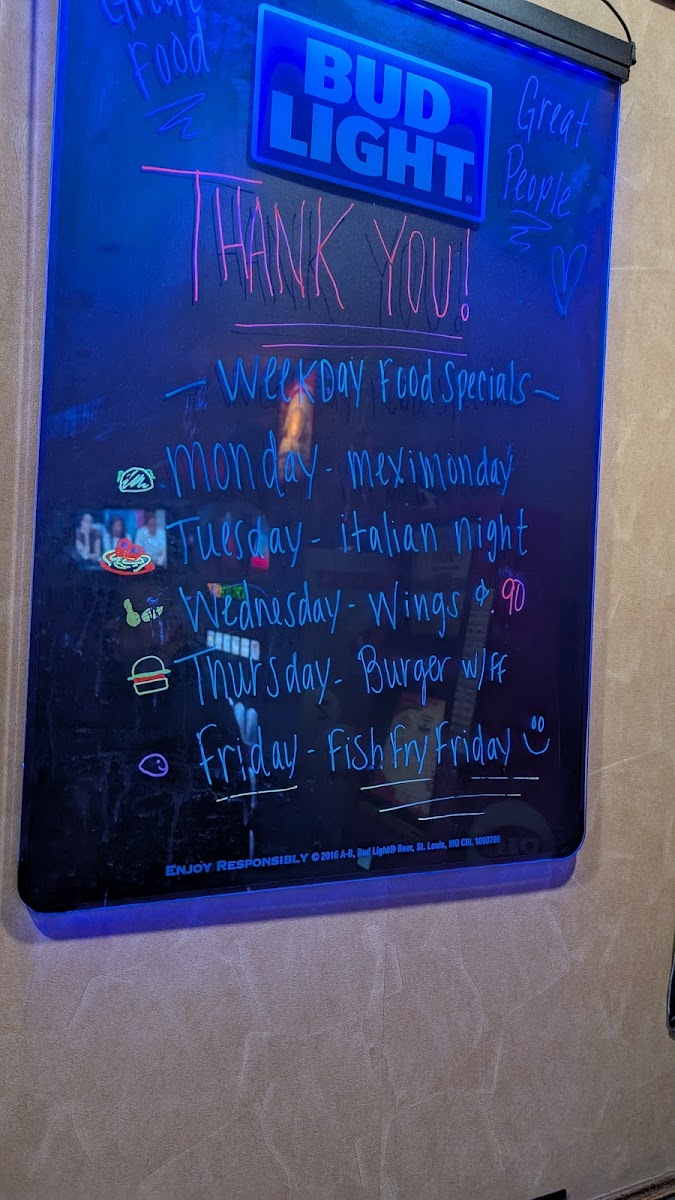 Great
Food
BUD
LIGHT
Great
People
THANK YOU!
- WEEKDAY Food Specials -
monday - meximonday
Tuesday - italian night
Wednesday - Wings ¢.90
Thursday - Burger w/FF
Friday - Fish Fry Friday
ENJOY RESPONSIBLY © 2016 A-B, Bud Light® Beer, St. Louis, MO CBL 1080706